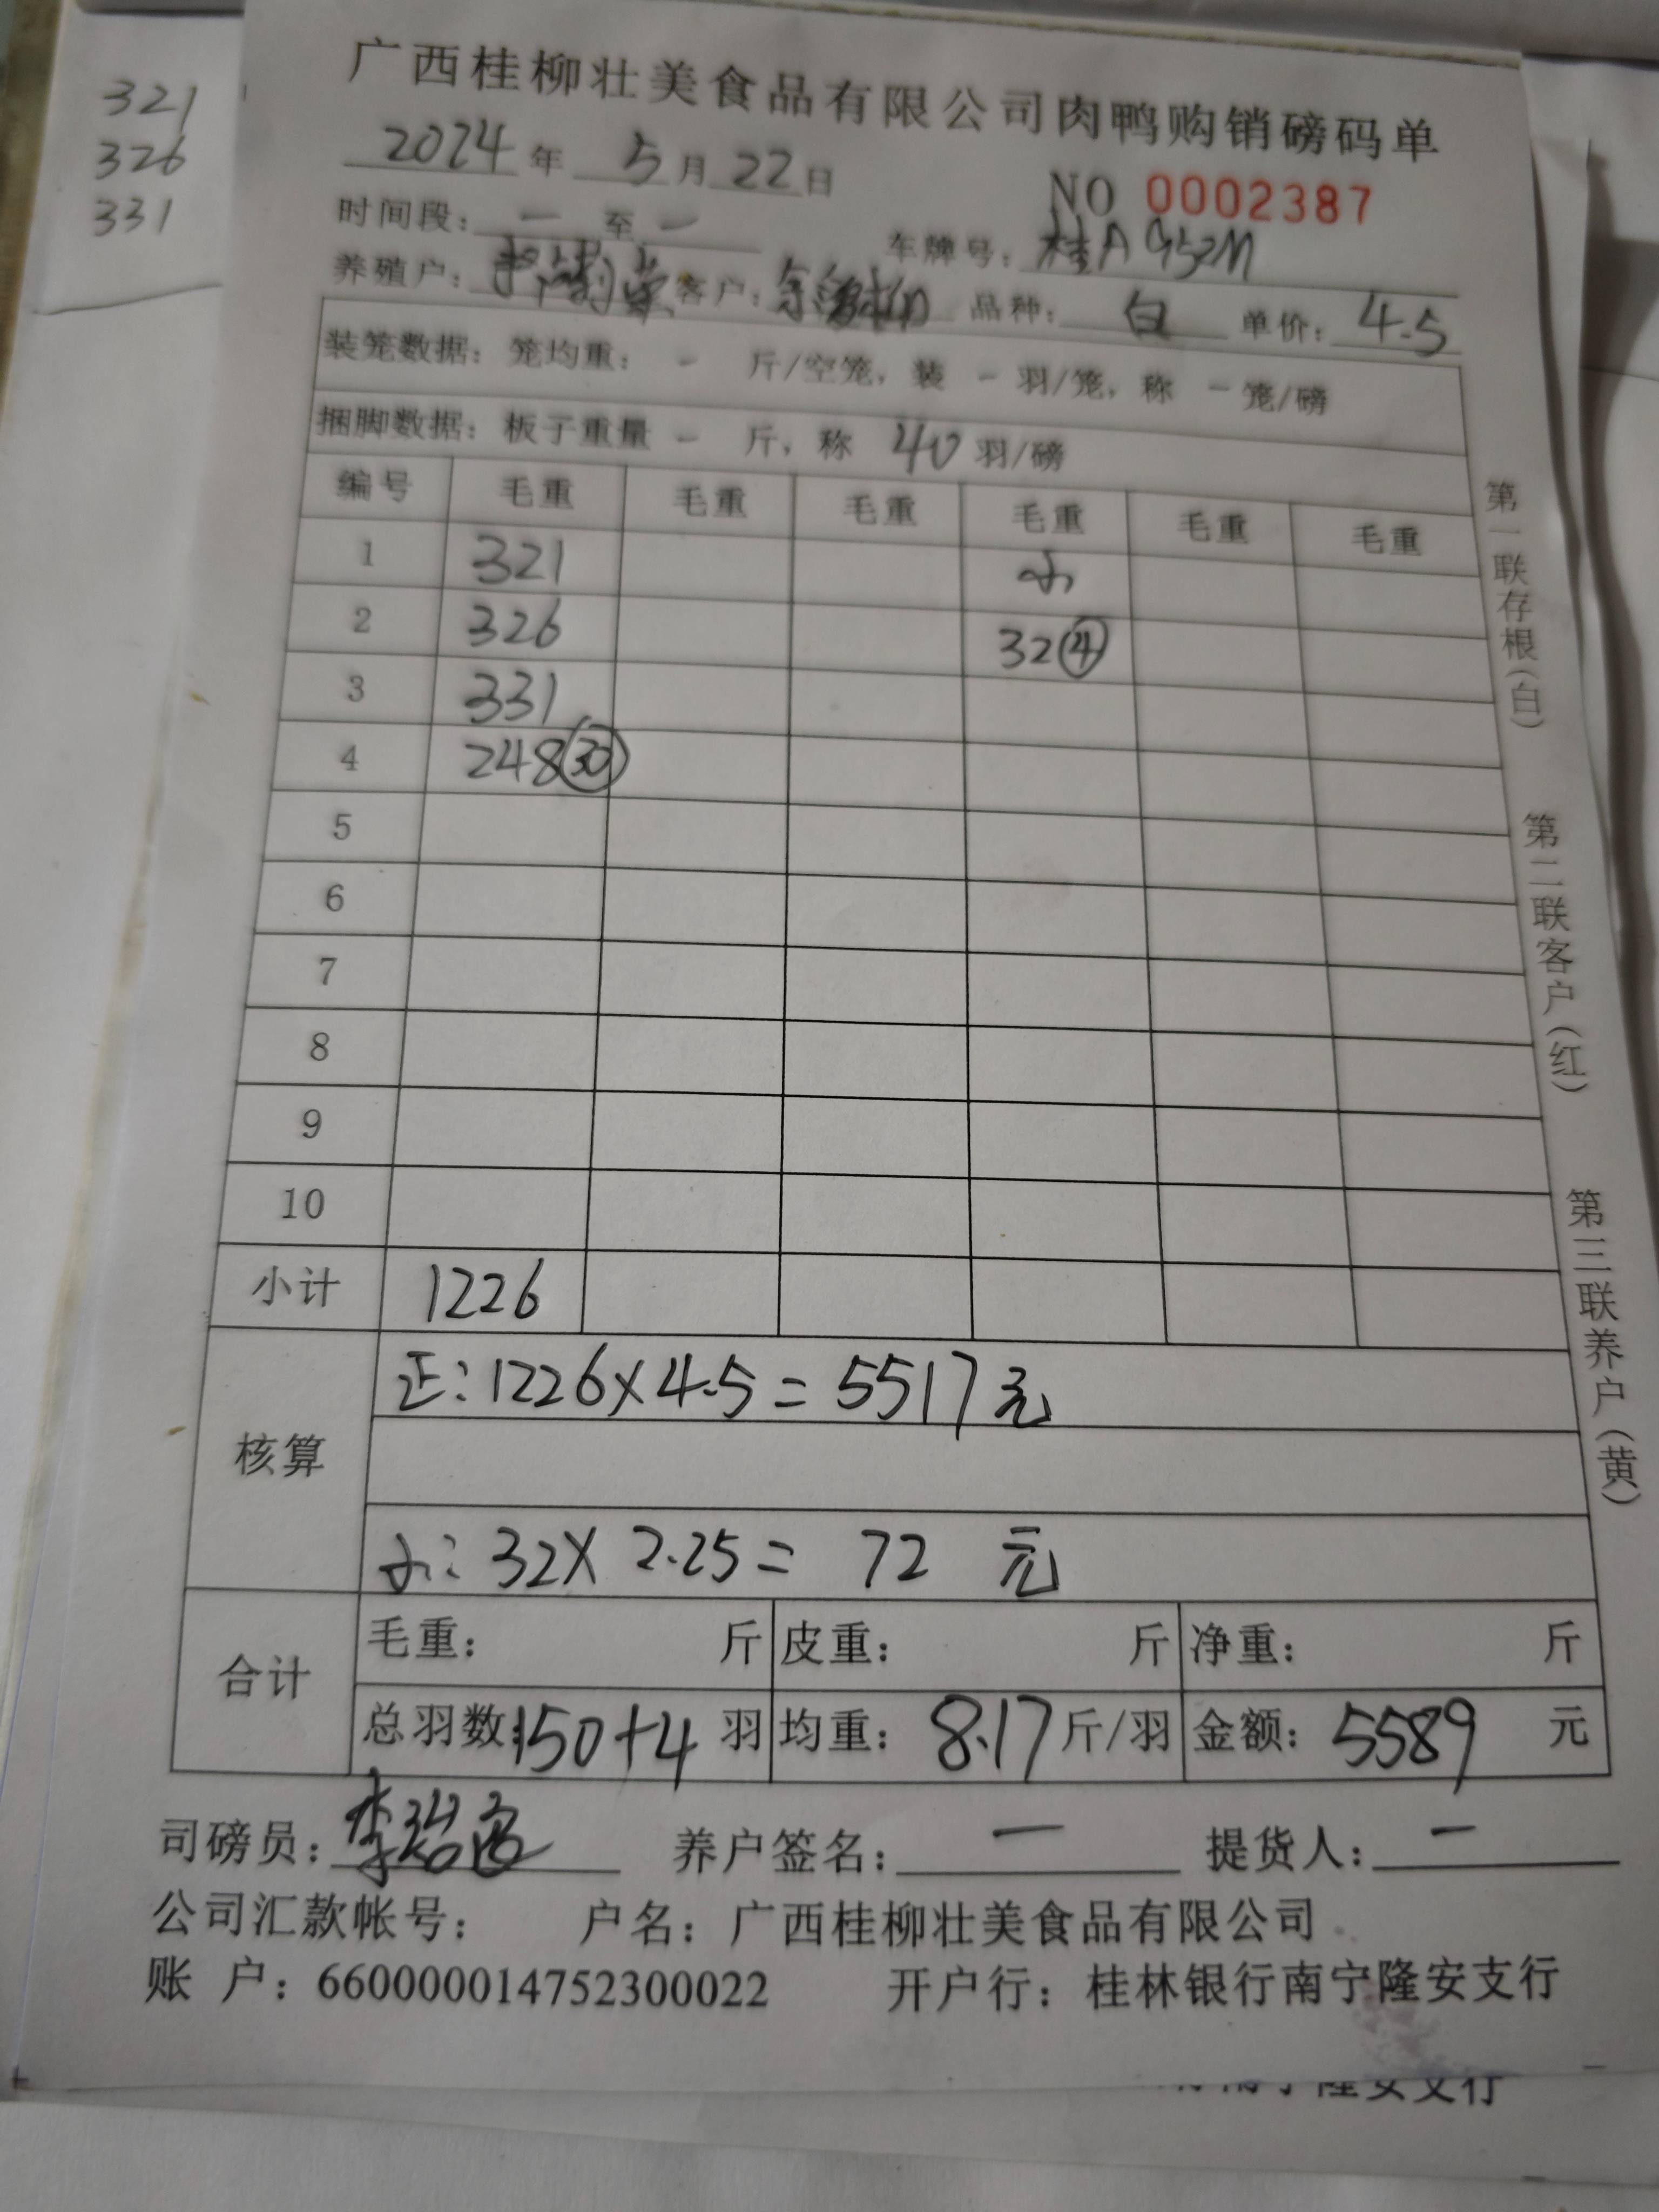 321
326
331
广西桂柳壮美食品有限公司肉鸭购销磅码单
2024年 5月22日
NO 0002387
时间段：一 至 一 车牌号：桂A
养殖户： 客户： 品种：白 单价：4.5
装笼数据：笼均重： - 斤/空笼，装 - 羽/笼，称 - 笼/磅
捆脚数据：板子重量 - 斤，称 40 羽/磅
编号 毛重 毛重 毛重 毛重 毛重 毛重
1 321 小
2 326 32④
3 331
4 248㉚
5
6
7
8
9
10
小计 1226
核算
正：1226×4.5=5517元
小：32×2.25= 72 元
合计
毛重： 斤 皮重： 斤 净重： 斤
总羽数：150+4 羽 均重：8.17斤/羽 金额：5589 元
司磅员： 养户签名：一 提货人：一
公司汇款帐号： 户名：广西桂柳壮美食品有限公司
账 户：660000014752300022 开户行：桂林银行南宁隆安支行
第一联存根（白）
第二联客户（红）
第三联养户（黄）
隆安支行